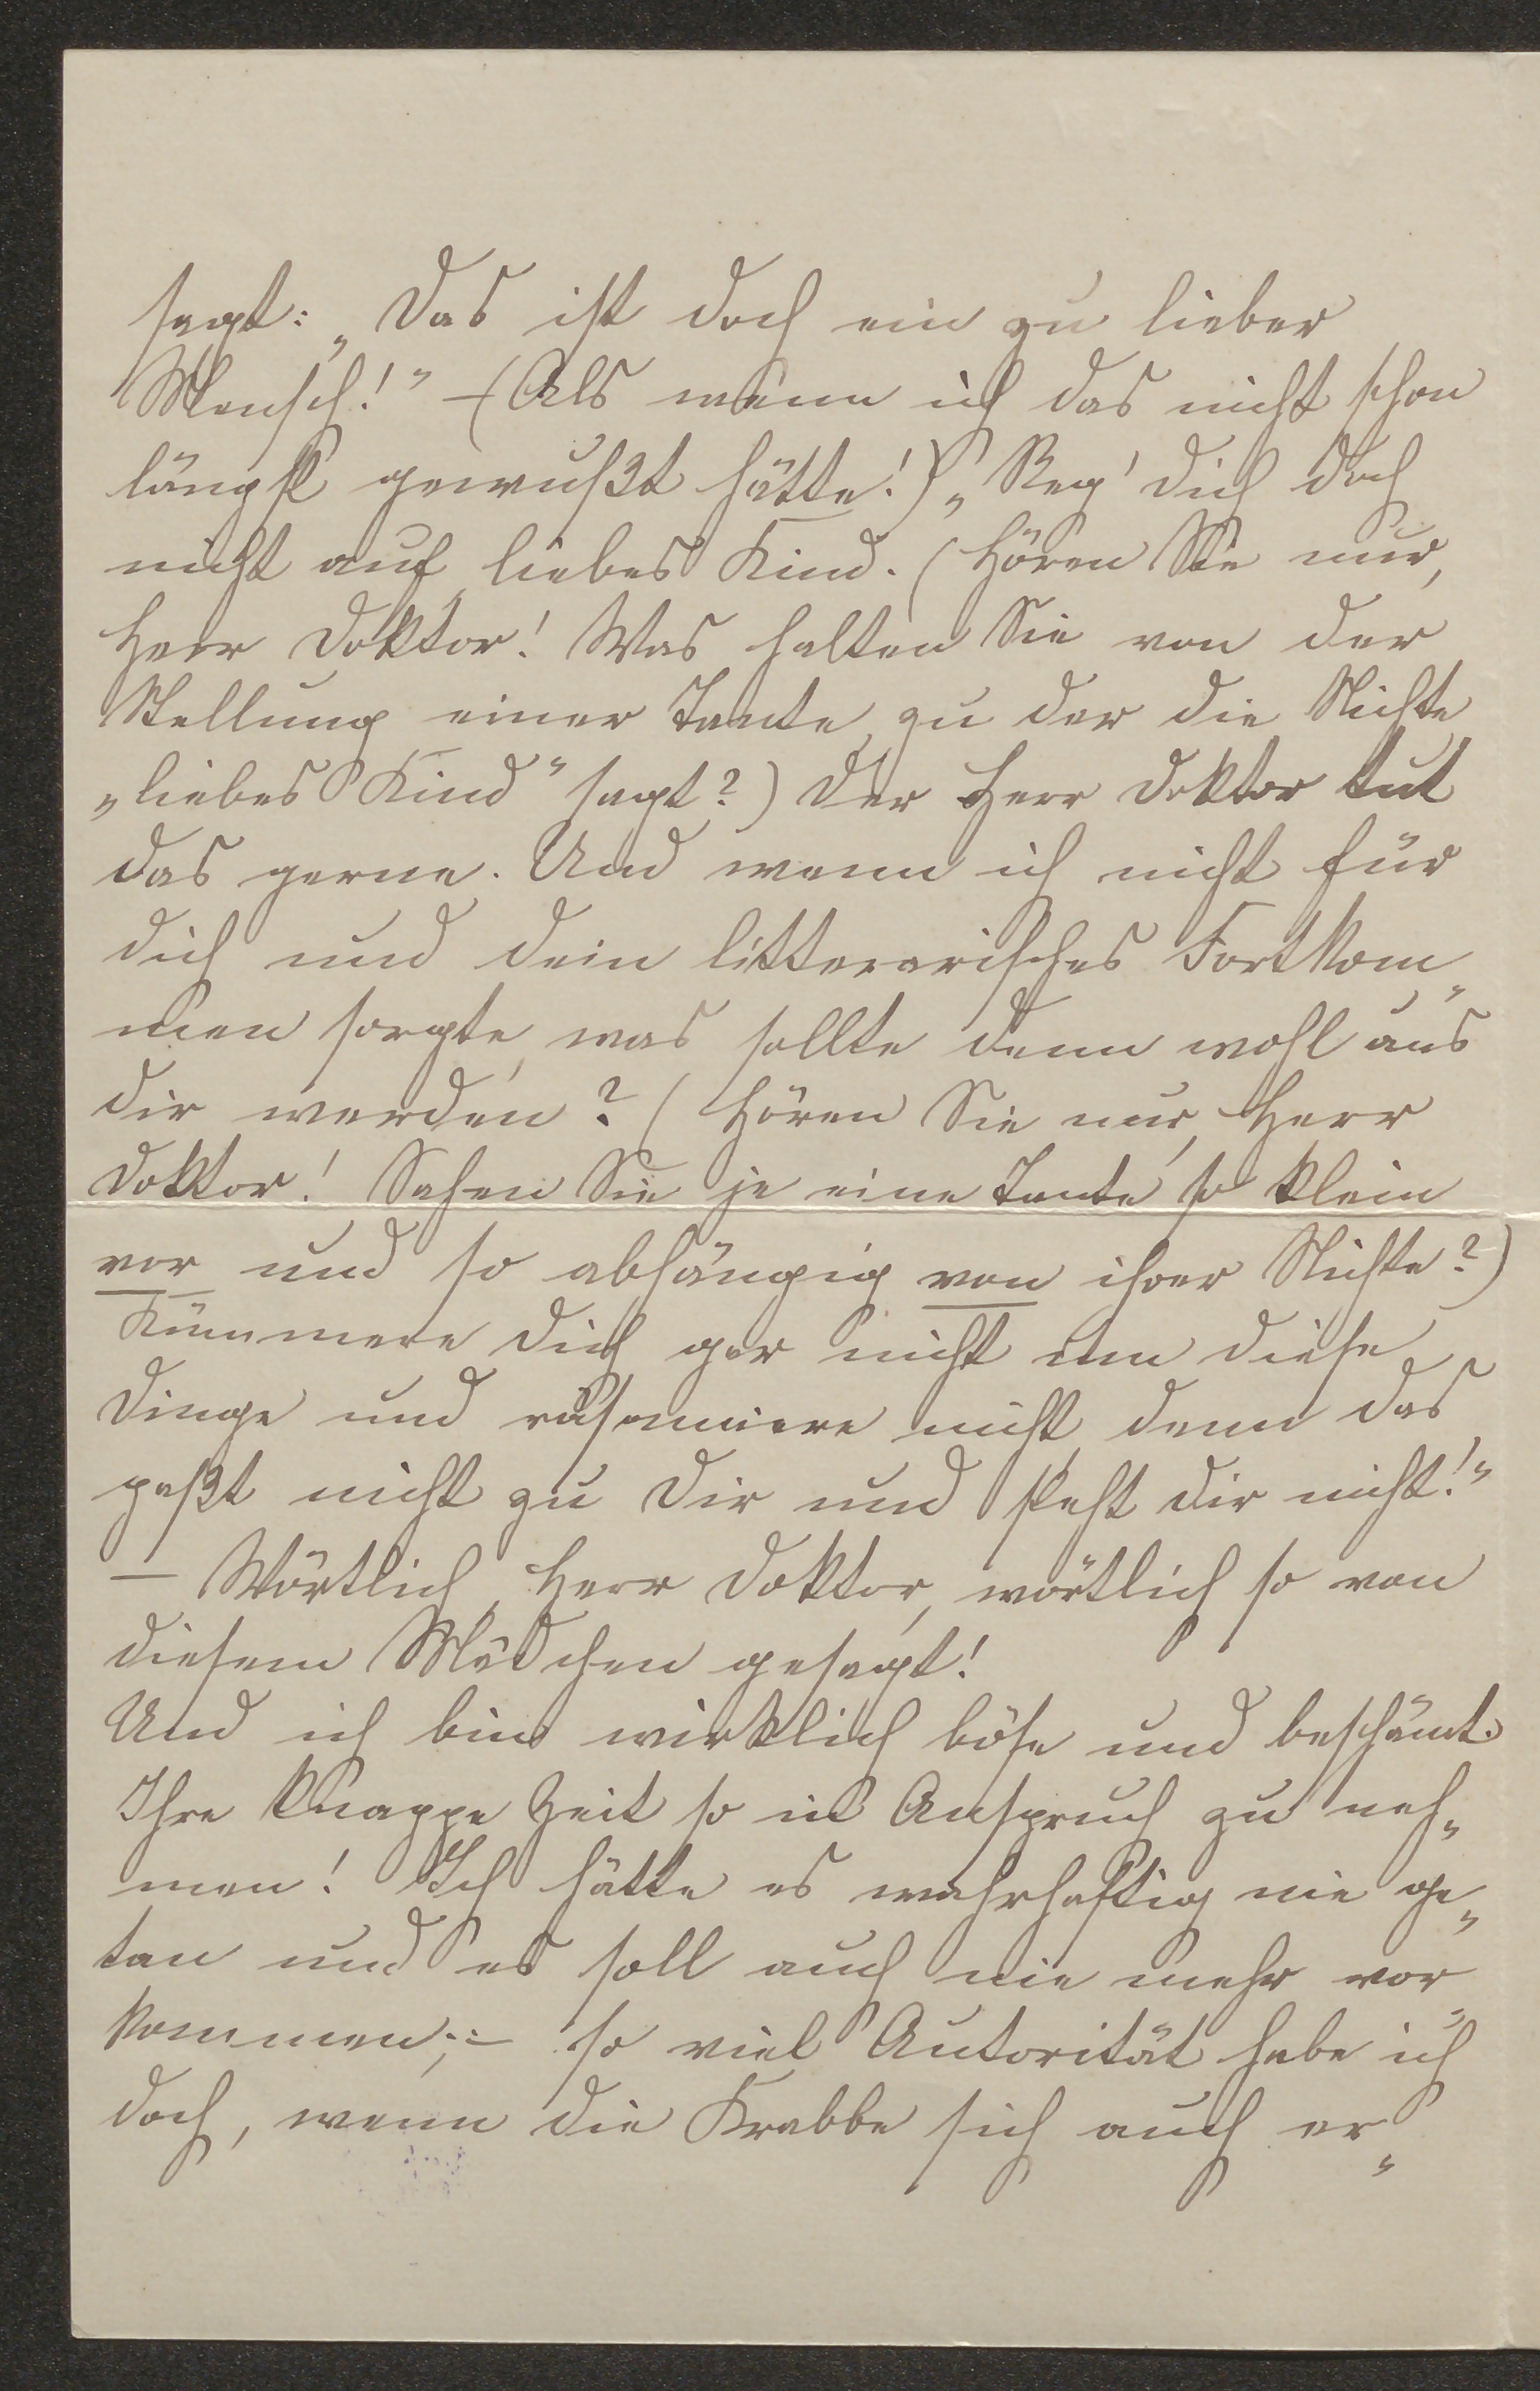 sagt: „Das ist doch ein zu lieber
Mensch!“ – (Als wenn ich das nicht schon
längst gewußt hätte!) „Reg' dich doch
nicht auf, liebes Kind. (Hören Sie nur,
Herr Doktor! Was halten Sie von der
Stellung einer Tante, zu der die Nichte
„liebes Kind“ sagt?) Der Herr Doktor tut
das gerne. Und wenn ich nicht für
dich und dein litterarisches Fortkom„
men sorgte, was sollte denn wohl aus
dir werden? (Hören Sie nur, Herr
Doktor! Sahen Sie je eine Tante so klein
vor und so abhängig von ihrer Nichte?)
Kümmere dich gar nicht um diese
Dinge und räsonniere nicht, denn das
paßt nicht zu Dir und steht dir nicht!“
– Wörtlich, Herr Doktor, wörtlich so von
diesem Mädchen gesagt!
Und ich bin wirklich böse und beschämt
Ihre knappe Zeit so in Anspruch zu neh„
men! Ich hätte es wahrhaftig nie ge„
tan und es soll auch nie mehr vor„
kommen; – so viel Autorität habe ich
doch, wenn die Krabbe sich auch er„